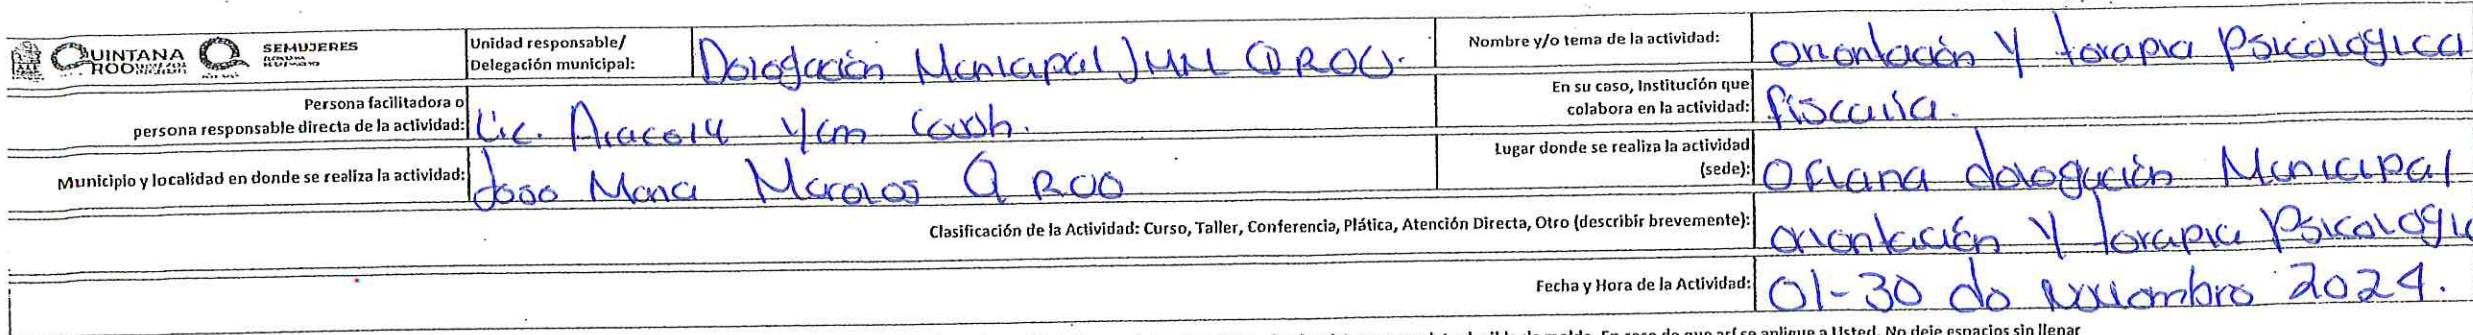 QUINTANA ROO
SEMUJERES
Unidad responsable/
Delegación municipal:
Delegación Municipal JMM Q ROO.
Nombre y/o tema de la actividad:
orientación y terapia Psicologica
Persona facilitadora o
persona responsable directa de la actividad:
Lic. Aracely
En su caso, Institución que
colabora en la actividad:
fiscalia.
Municipio y localidad en donde se realiza la actividad:
Jose Maria Morelos Q ROO
Lugar donde se realiza la actividad
(sede):
Oficina delegación Municipal
Clasificación de la Actividad: Curso, Taller, Conferencia, Plática, Atención Directa, Otro (describir brevemente):
orientación y terapia Psicologic
Fecha y Hora de la Actividad:
01-30 de Noviembre 2024.
En caso de que así se aplique a Usted. No deje espacios sin llenar